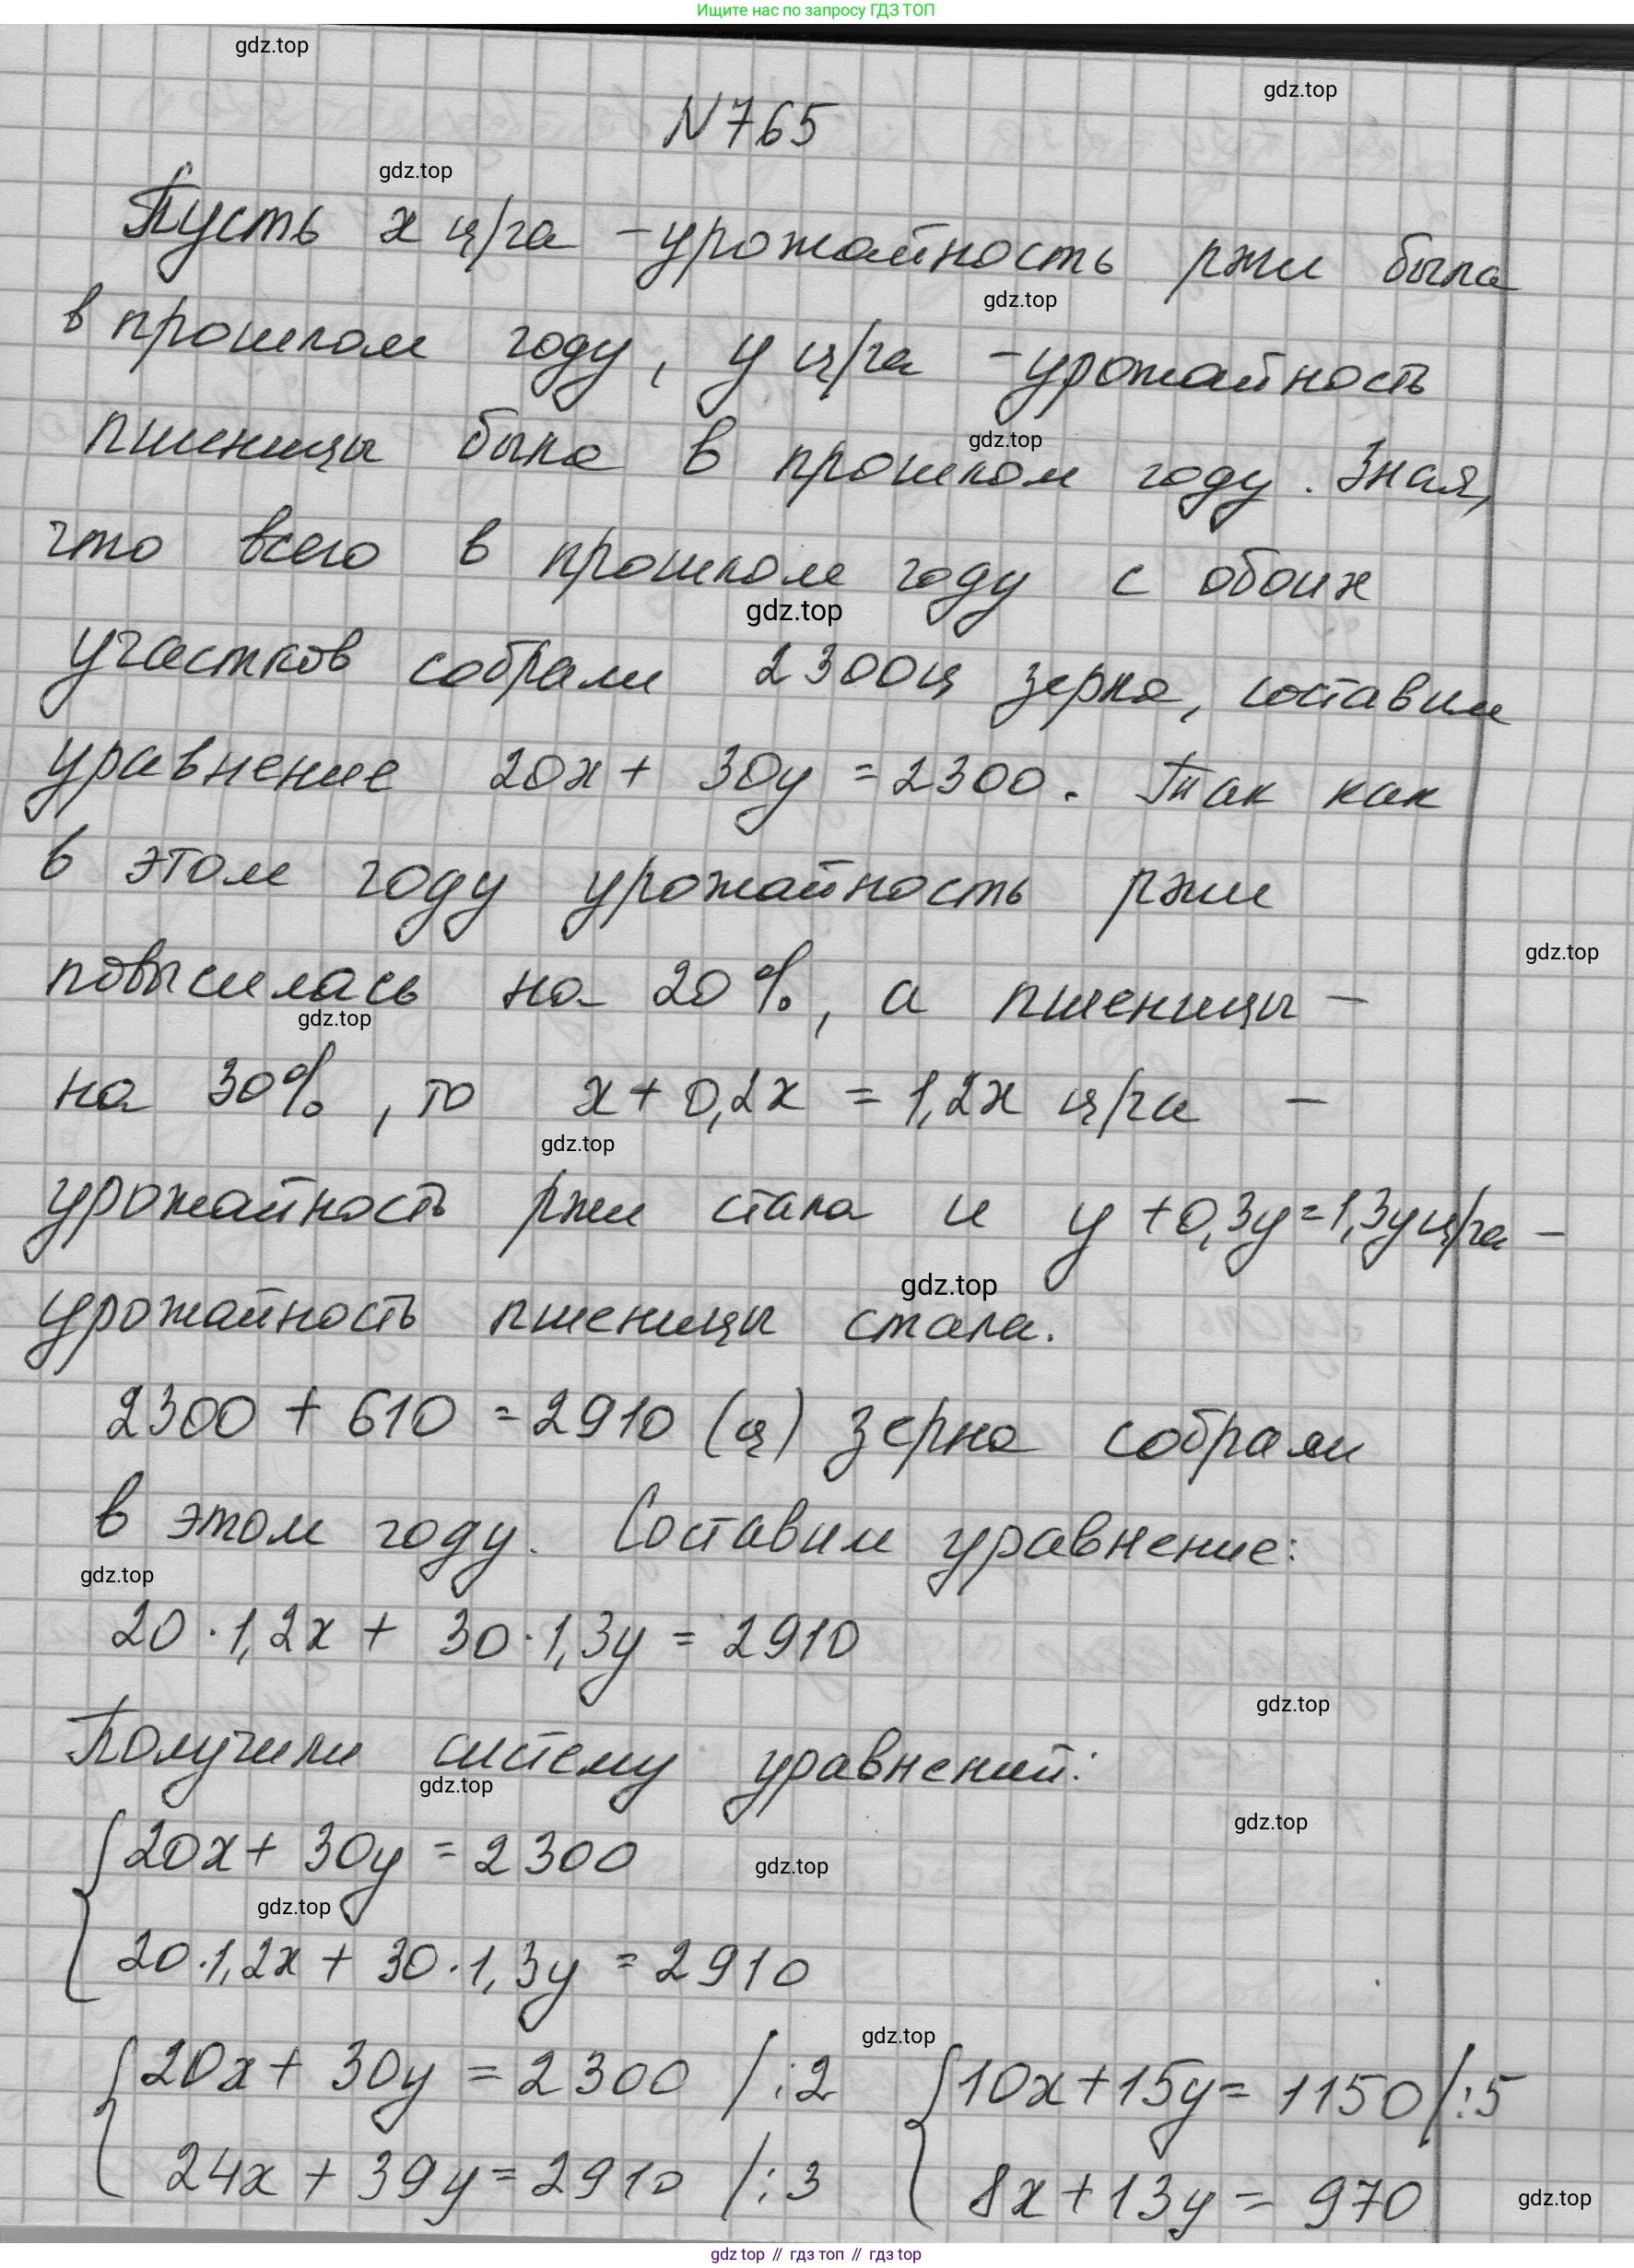 Ищите нас по запросу ГДЗ ТОП
gdz.top
gdz.top
N765
gdz.top
Пусть x ц/га - урожайность ржи была
gdz.top
в прошлом году, y ц/га - урожайность
пшеницы была в прошлом году. Зная,
gdz.top
что всего в прошлом году с обоих
gdz.top
участков собрали 2300ц зерна, составим
уравнение 20x + 30y = 2300. Так как
в этом году урожайность ржи
gdz.top
повысилась на 20%, а пшеницы -
gdz.top
на 30%, то x + 0,2x = 1,2x ц/га -
gdz.top
урожайность ржи стала и y + 0,3y = 1,3y ц/га -
gdz.top
урожайность пшеницы стала.
2300 + 610 = 2910 (ц) зерна собрали
в этом году. Составим уравнение:
gdz.top
20 · 1,2x + 30 · 1,3y = 2910
gdz.top
Получили систему уравнений:
gdz.top
gdz.top
{ 20x + 30y = 2300
gdz.top
gdz.top
20 · 1,2x + 30 · 1,3y = 2910
gdz.top
{ 20x + 30y = 2300 /:2 { 10x + 15y = 1150 /:5
24x + 39y = 2910 /:3 8x + 13y = 970
gdz.top
gdz top // гдз топ // гдз top